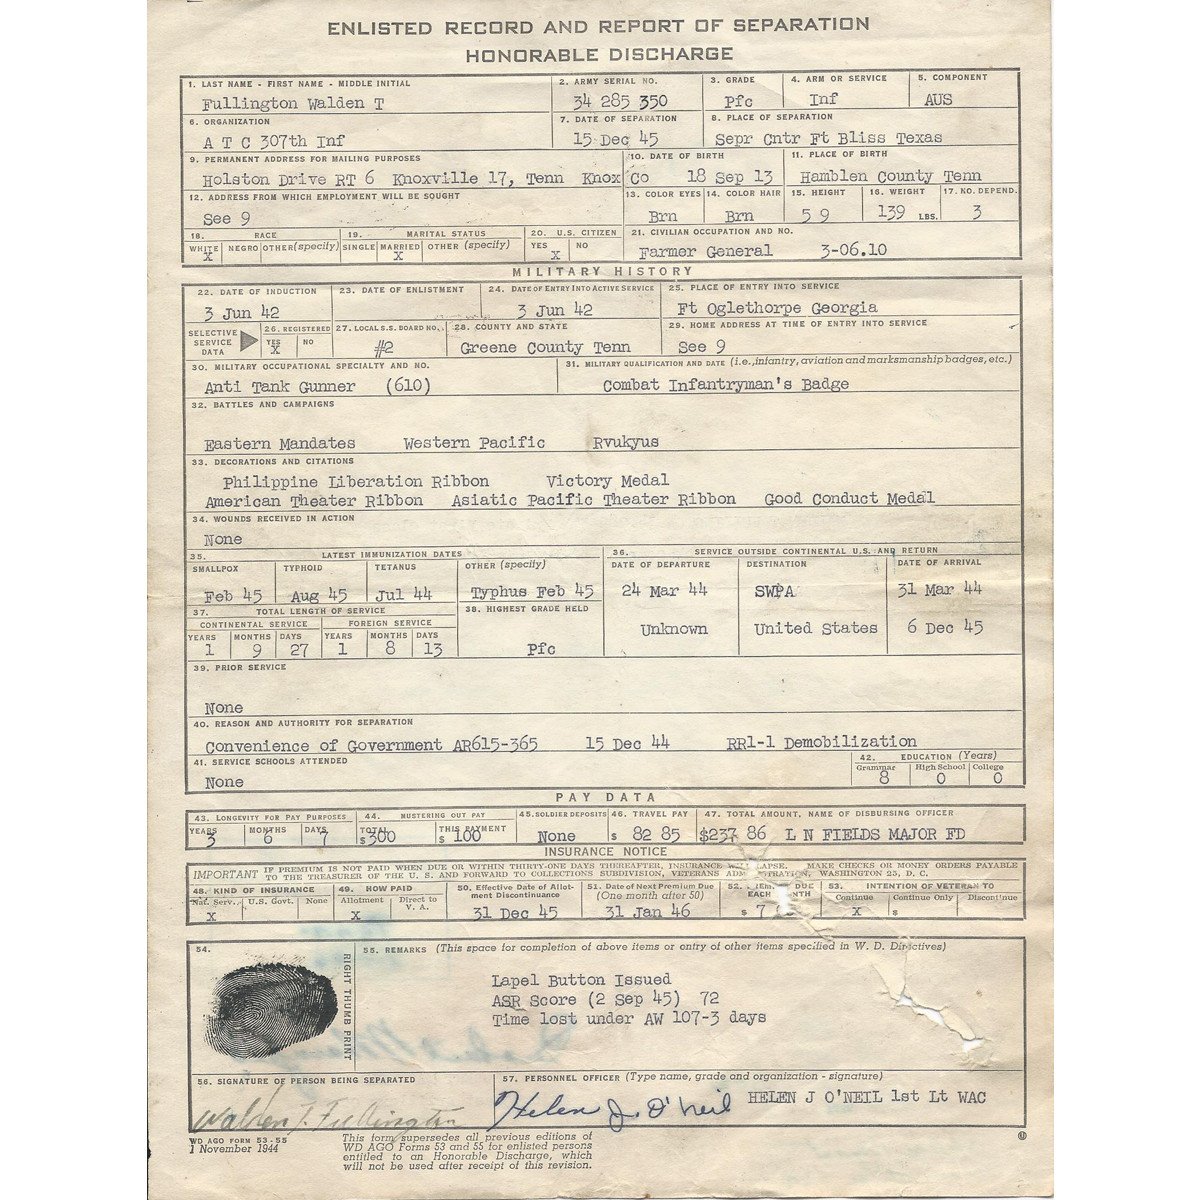 ENLISTED RECORD AND REPORT OF SEPARATION
HONORABLE DISCHARGE
1. LAST NAME - FIRST NAME - MIDDLE INITIAL 2. ARMY SERIAL NO. 3. GRADE 4. ARM OR SERVICE 5. COMPONENT
Fullington Walden T 34 285 350 Pfc Inf AUS
6. ORGANIZATION 7. DATE OF SEPARATION 8. PLACE OF SEPARATION
A T C 307th Inf 15 Dec 45 Sepr Cntr Ft Bliss Texas
9. PERMANENT ADDRESS FOR MAILING PURPOSES 10. DATE OF BIRTH 11. PLACE OF BIRTH
Holston Drive RT 6 Knoxville 17, Tenn Knox Co 18 Sep 13 Hamblen County Tenn
12. ADDRESS FROM WHICH EMPLOYMENT WILL BE SOUGHT 13. COLOR EYES 14. COLOR HAIR 15. HEIGHT 16. WEIGHT 17. NO. DEPEND.
See 9 Brn Brn 5 9 139 LBS. 3
18. RACE 19. MARITAL STATUS 20. U.S. CITIZEN 21. CIVILIAN OCCUPATION AND NO.
WHITE NEGRO OTHER (specify) SINGLE MARRIED OTHER (specify) YES NO
X X X Farmer General 3-06.10
MILITARY HISTORY
22. DATE OF INDUCTION 23. DATE OF ENLISTMENT 24. DATE OF ENTRY INTO ACTIVE SERVICE 25. PLACE OF ENTRY INTO SERVICE
3 Jun 42 3 Jun 42 Ft Oglethorpe Georgia
SELECTIVE SERVICE DATA 26. REGISTERED 27. LOCAL S.S. BOARD NO. 28. COUNTY AND STATE 29. HOME ADDRESS AT TIME OF ENTRY INTO SERVICE
YES NO
X #2 Greene County Tenn See 9
30. MILITARY OCCUPATIONAL SPECIALTY AND NO. 31. MILITARY QUALIFICATION AND DATE (i.e., infantry, aviation and marksmanship badges, etc.)
Anti Tank Gunner (610) Combat Infantryman's Badge
32. BATTLES AND CAMPAIGNS
Eastern Mandates Western Pacific Rvukyus
33. DECORATIONS AND CITATIONS
Philippine Liberation Ribbon Victory Medal
American Theater Ribbon Asiatic Pacific Theater Ribbon Good Conduct Medal
34. WOUNDS RECEIVED IN ACTION
None
35. LATEST IMMUNIZATION DATES 36. SERVICE OUTSIDE CONTINENTAL U.S. AND RETURN
SMALLPOX TYPHOID TETANUS OTHER (specify) DATE OF DEPARTURE DESTINATION DATE OF ARRIVAL
Feb 45 Aug 45 Jul 44 Typhus Feb 45 24 Mar 44 SWPA 31 Mar 44
37. TOTAL LENGTH OF SERVICE 38. HIGHEST GRADE HELD
CONTINENTAL SERVICE FOREIGN SERVICE Unknown United States 6 Dec 45
YEARS MONTHS DAYS YEARS MONTHS DAYS
1 9 27 1 8 13 Pfc
39. PRIOR SERVICE
None
40. REASON AND AUTHORITY FOR SEPARATION
Convenience of Government AR615-365 15 Dec 44 RR1-1 Demobilization
41. SERVICE SCHOOLS ATTENDED 42. EDUCATION (Years)
Grammar High School College
None 8 0 0
PAY DATA
43. LONGEVITY FOR PAY PURPOSES 44. MUSTERING OUT PAY 45. SOLDIER DEPOSITS 46. TRAVEL PAY 47. TOTAL AMOUNT, NAME OF DISBURSING OFFICER
YEARS MONTHS DAYS TOTAL THIS PAYMENT
3 6 7 $300 $100 None $ 82 85 $237 86 L N FIELDS MAJOR FD
INSURANCE NOTICE
IMPORTANT IF PREMIUM IS NOT PAID WHEN DUE OR WITHIN THIRTY-ONE DAYS THEREAFTER, INSURANCE LAPSE. MAKE CHECKS OR MONEY ORDERS PAYABLE
TO THE TREASURER OF THE U. S. AND FORWARD TO COLLECTIONS SUBDIVISION, VETERANS WASHINGTON 25, D. C.
48. KIND OF INSURANCE 49. HOW PAID 50. Effective Date of Allotment Discontinuance 51. Date of Next Premium Due (One month after 50) 52. DUE EACH MONTH 53. INTENTION OF VETERAN TO
Nat. Serv. U.S. Govt. None Allotment Direct to V. A. Continue Continue Only Discontinue
X X 31 Dec 45 31 Jan 46 $ 7 X $
54. RIGHT THUMB PRINT
55. REMARKS (This space for completion of above items or entry of other items specified in W. D. Directives)
Lapel Button Issued
ASR Score (2 Sep 45) 72
Time lost under AW 107-3 days
56. SIGNATURE OF PERSON BEING SEPARATED 57. PERSONNEL OFFICER (Type name, grade and organization - signature)
Walden T. Fullington Helen J. O'Neil HELEN J O'NEIL 1st Lt WAC
WD AGO FORM 53-55
1 November 1944
This form supersedes all previous editions of
WD AGO Forms 53 and 55 for enlisted persons
entitled to an Honorable Discharge, which
will not be used after receipt of this revision.